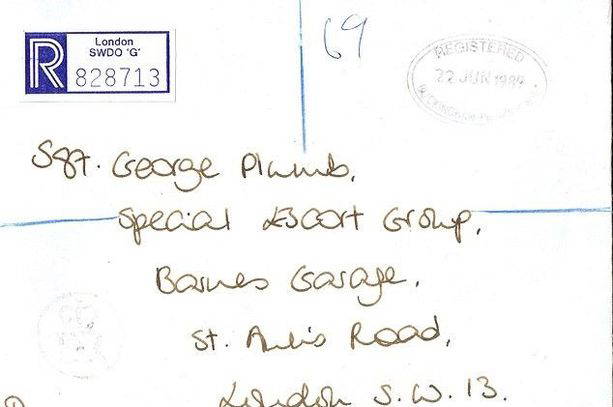 London
SWDO 'G'
R 828713
69
REGISTERED
22 JUN 1989
Sgt. George Plumb,
Special Escort Group,
Barnes Garage,
St. Road,
London S.W. 13.